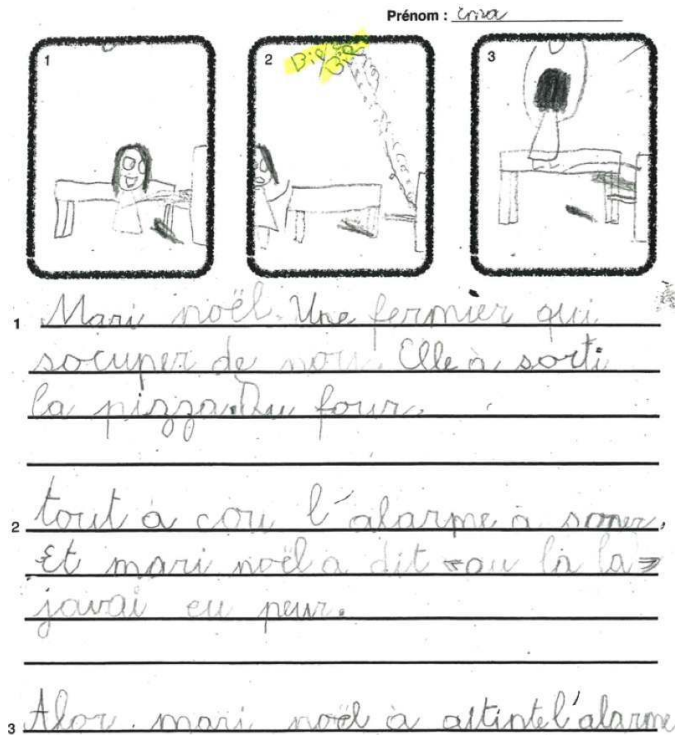 Prénom : Ema
1 2 3
Bip Bip
1 Mari noël. Une fermier qui
socuper de nou. Elle à sorti
la pizza. Du four.
2 tout à cou l'alarme à soner.
Et mari noël à dit « ou là la »
javai eu peur.
3 Alor. mari noël à attintel'alarme